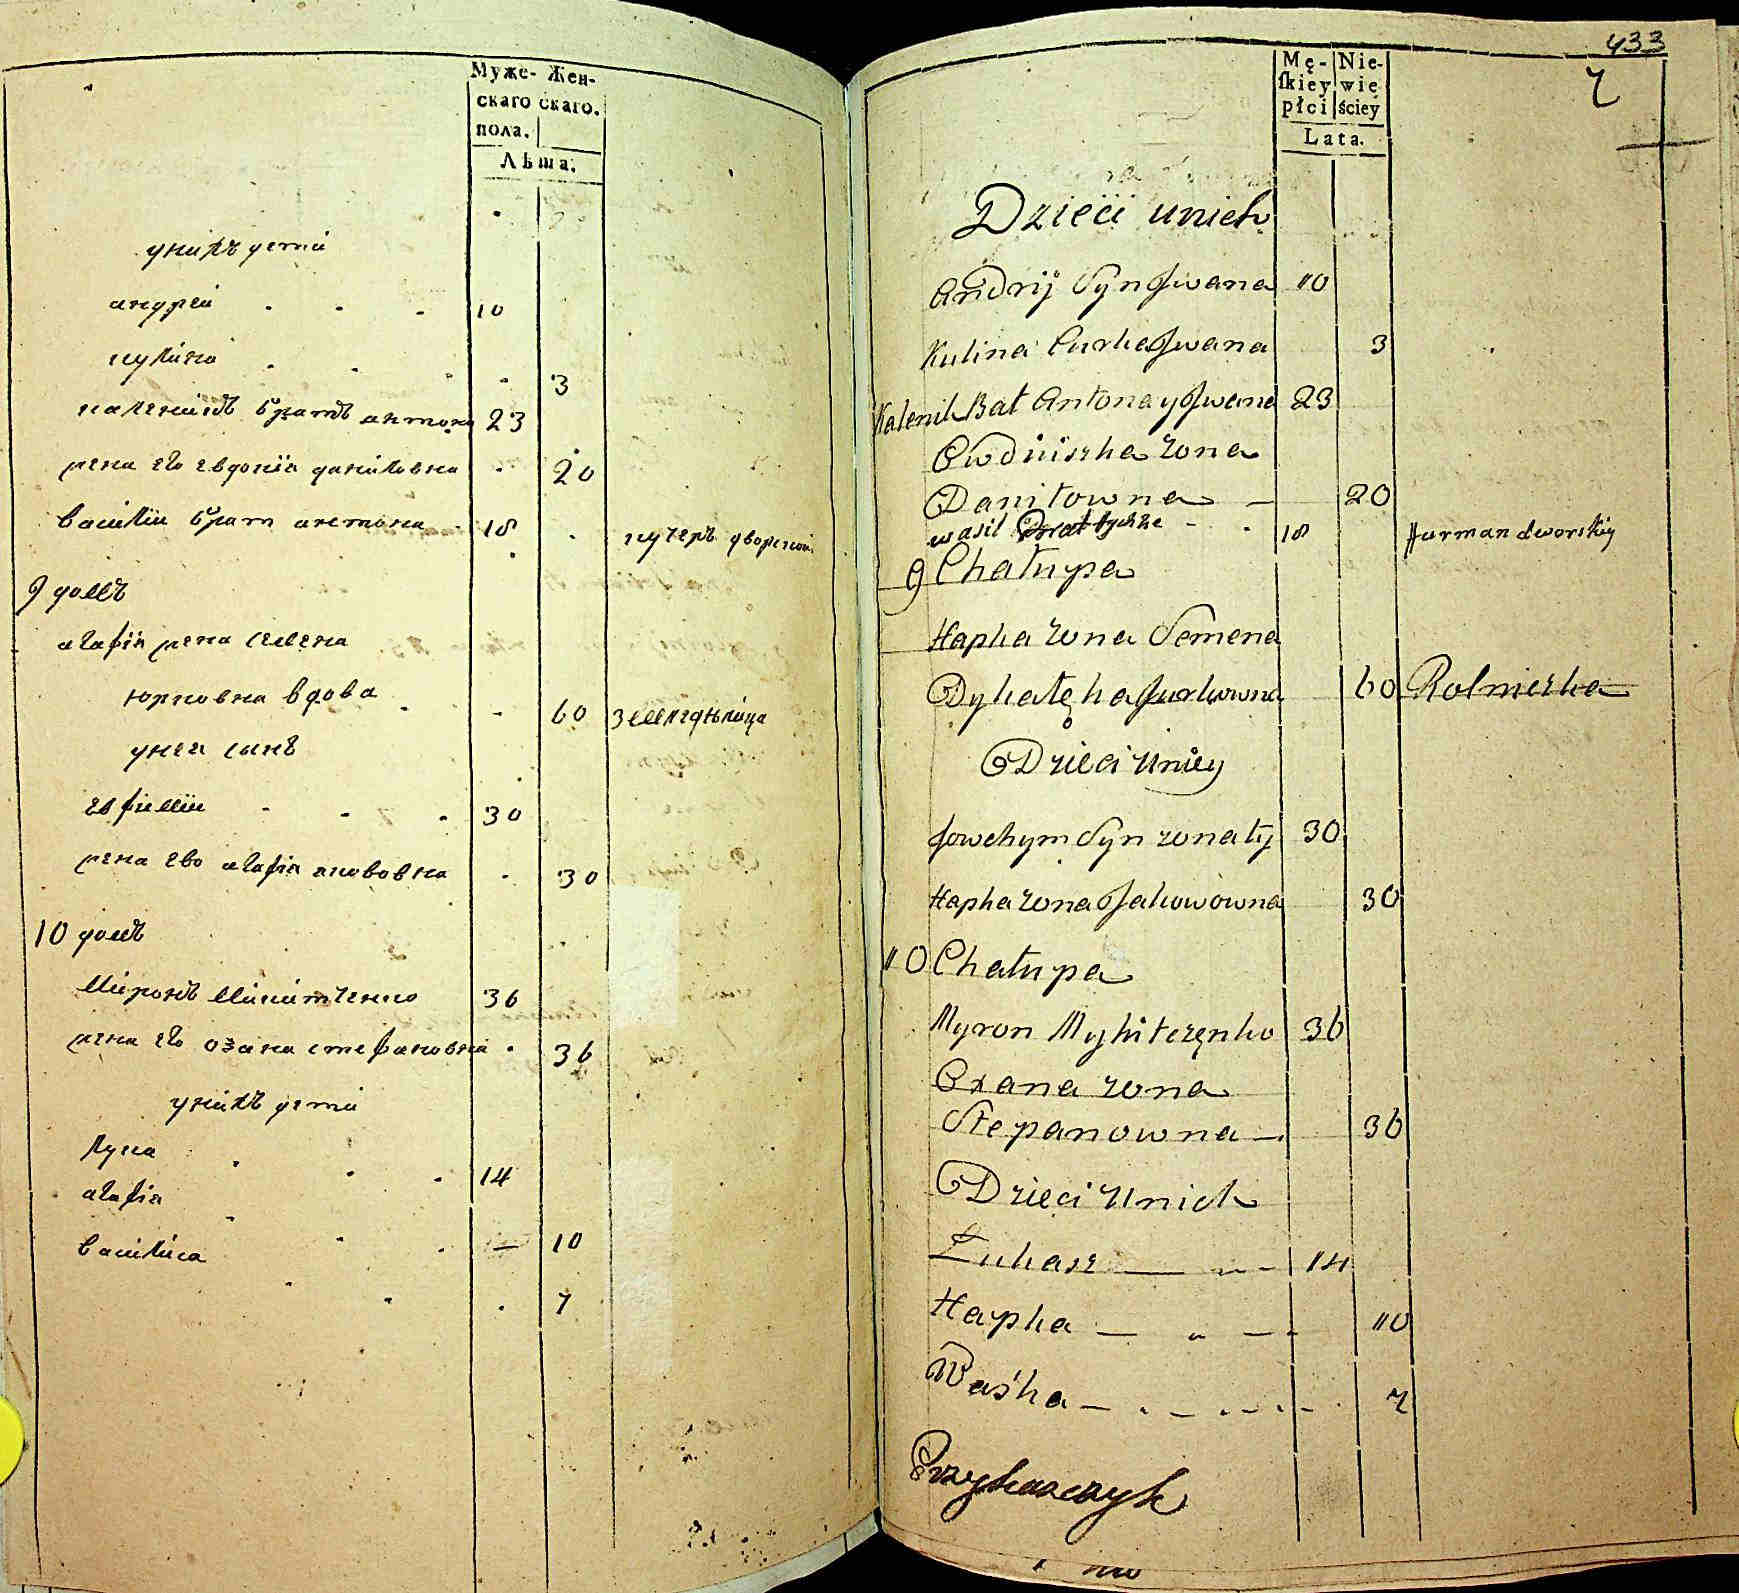 Муже- Жен-
скаго скаго.
пола.
Лѣта.
унихъ дети
андреи 10
кулина 3
каленикъ братъ антона 23
жена его евдокія даниловна 20
василии брат антона 18 кучеръ дворской
9 домъ
агафія жена семена
юрковна вдова 60 земледелица
унеи сынъ
евфимии 30
жена ево агафія якововна 30
10 домъ
миронъ микитченко 36
жена его оксана стефановна 36
унихъ дети
лука 14
агафія 10
василиса 7
433
7
Mę- Nie-
skiey wie
płci ściey
Lata.
Dzieci unich
Andrij Syn Jwana 10
Kulina Curka Jwana 3
Kalenik Bat Antona y Jwana 23
Owdiuszka zona
Daniłowna 20
wasil Brat tychże 18 Furman dworskiy
9 Chałupa
Hapka zona Semena
Jurkowna 60 Rolniczka
Dzieci Uniey
Jowchym Syn zonaty 30
Hapka zona Jakowowna 30
10 Chałupa
Myron Mykitczęnko 36
Oxana zona
Stepanowna 36
Dzieci Unich
Łukasz 14
Hapka 10
Waśka 7